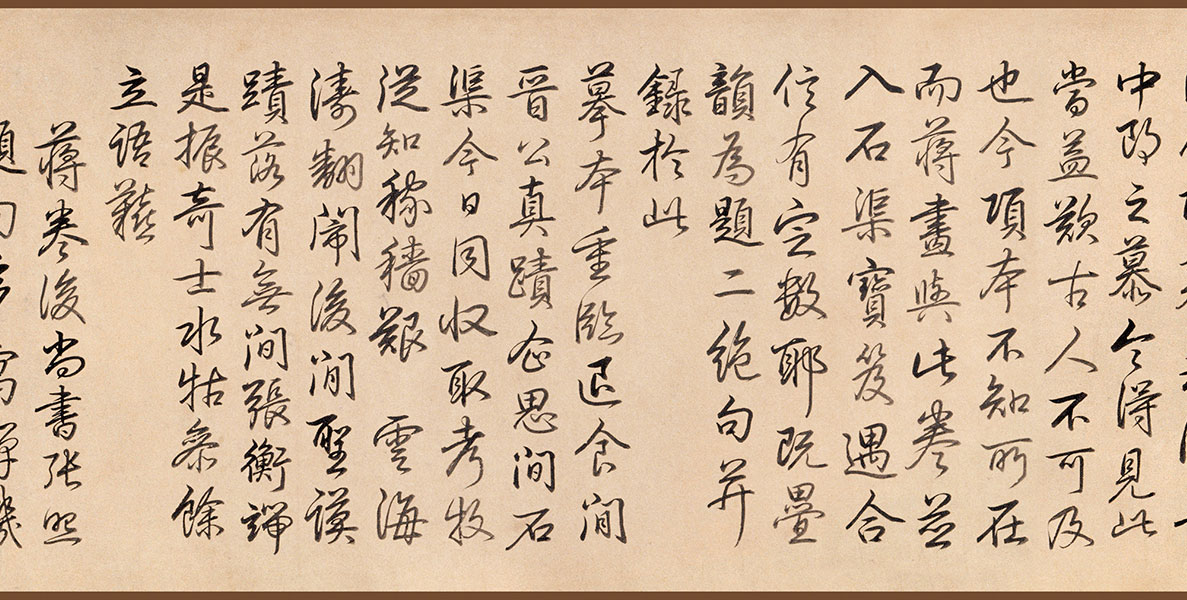 中郎之慕今得見此
當益歎古人不可及
也今項本不知所在
而蔣畫與此卷並
入石渠寶笈遇合
信有定數耶既疊
韻為題二絕句并
録於此
摹本重臨退食間
晉公真蹟企思間石
渠今日同收取考牧
從知稼穡艱 雲海
濤翻閙後間聖謨
蹟落有無間張衡端
是振奇士水牯參餘
立語艱
蔣卷後尚書張照